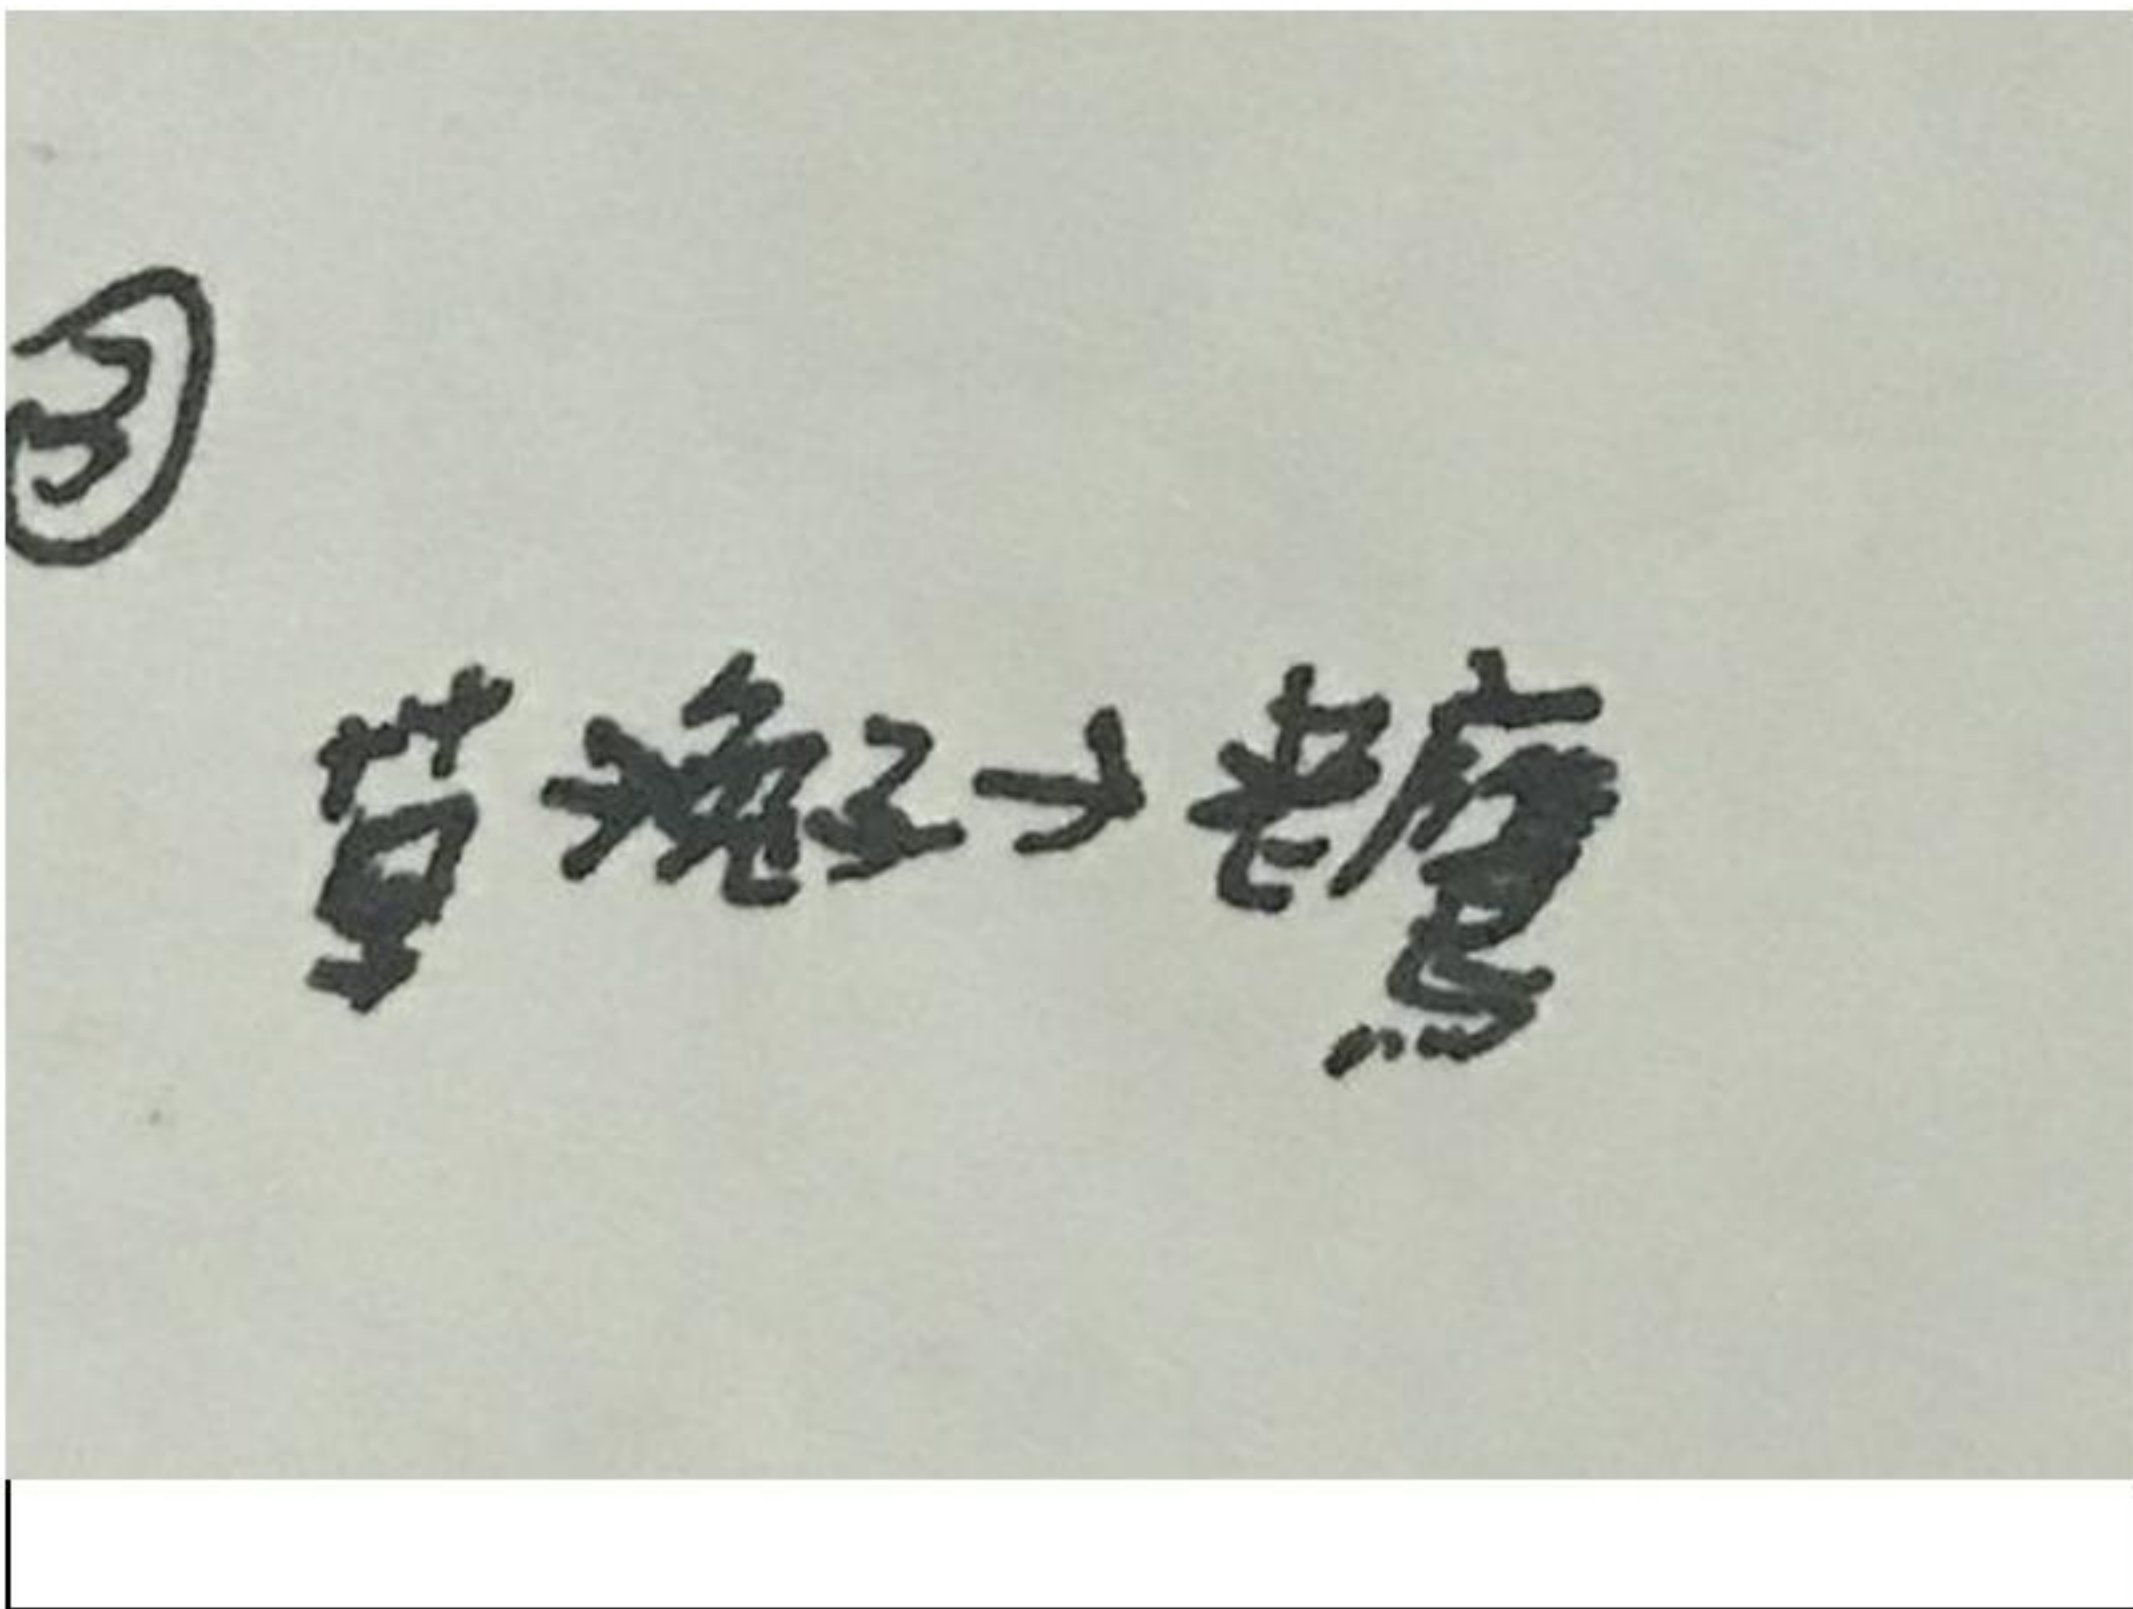 ③
草→兔子→老鹰